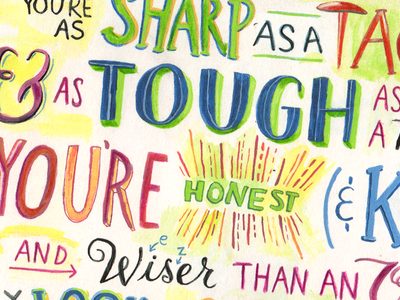 YOU'RE
AS SHARP AS A TAC
& AS TOUGH AS
A
YOU'RE HONEST (& K
AND → Wiser THAN AN